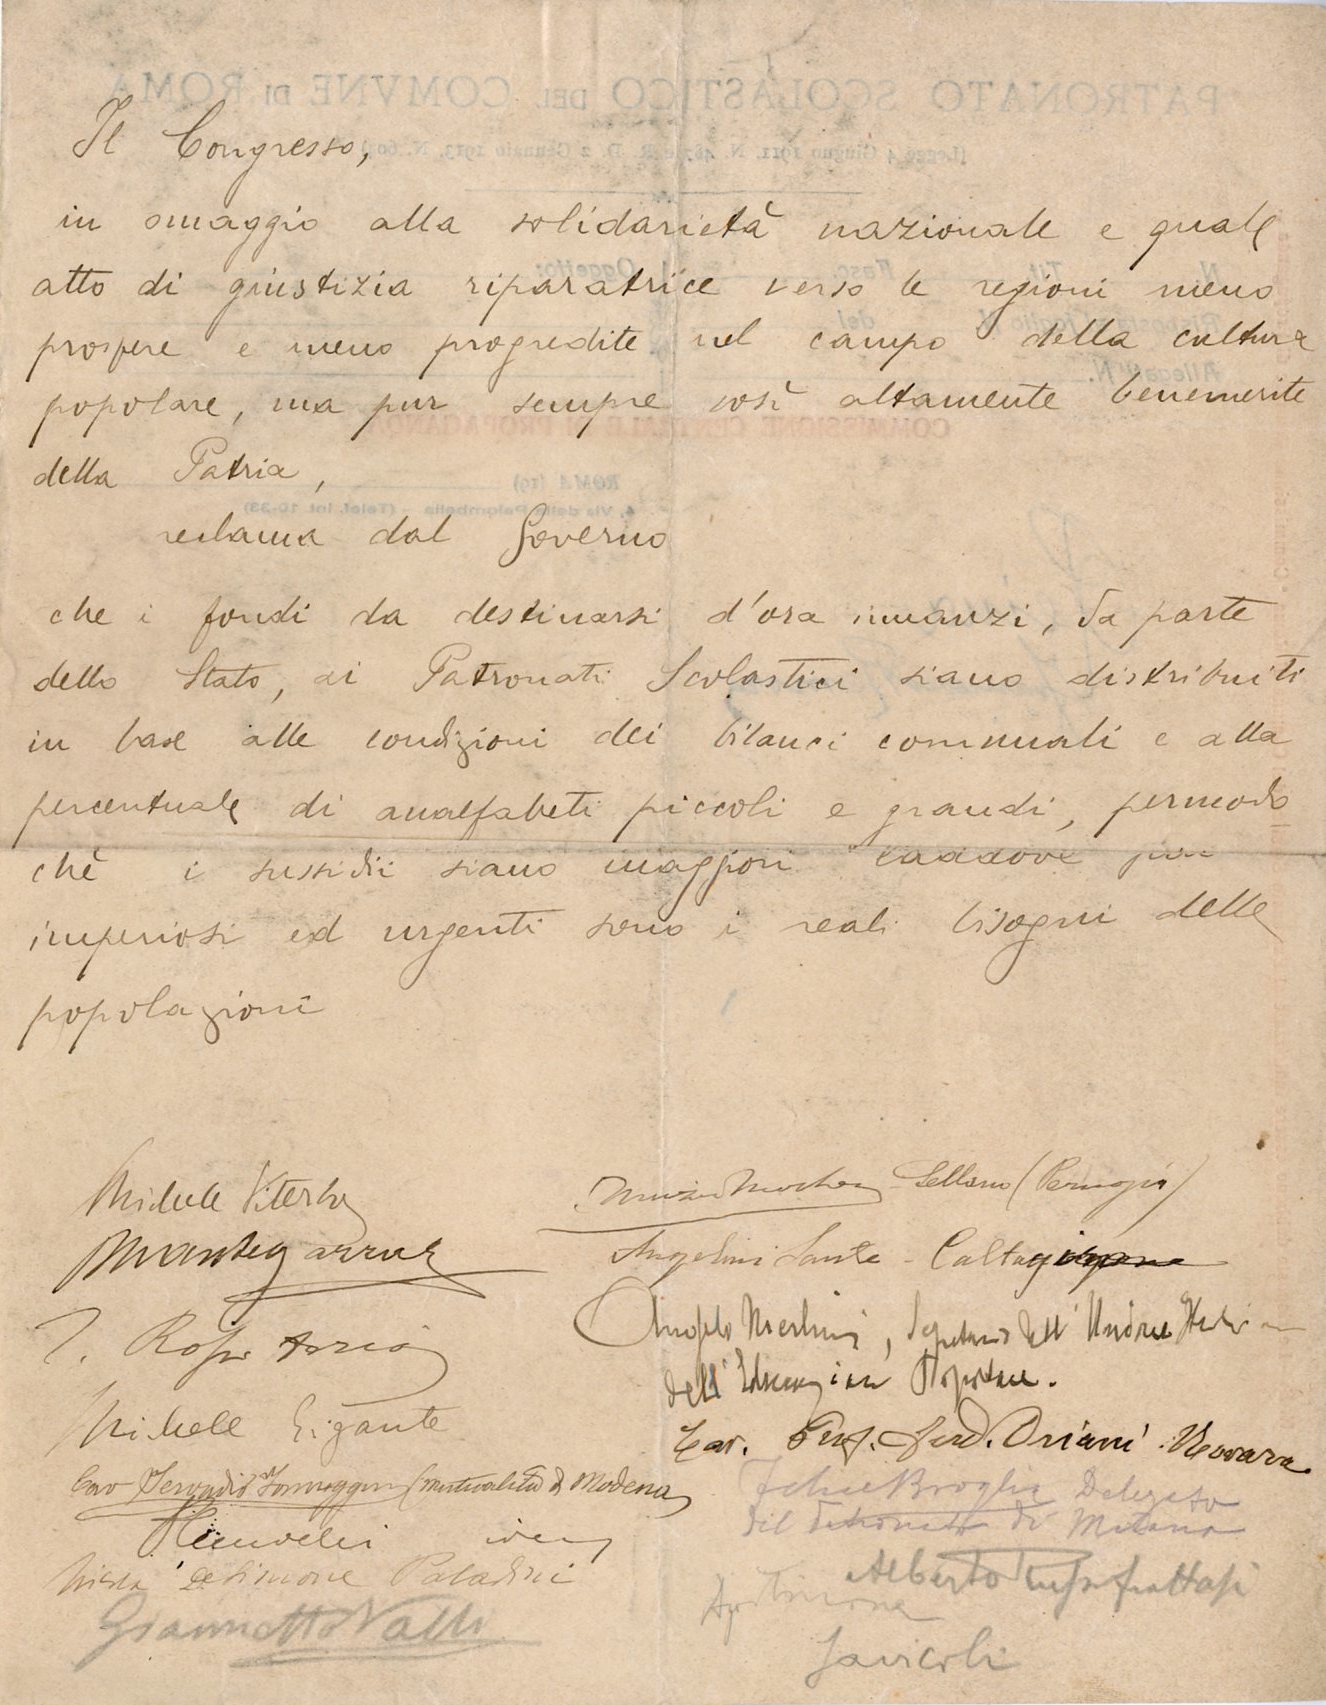 Il Congresso,
in omaggio alla solidarietà nazionale e quale
atto di giustizia riparatrice verso le regioni meno
prospere e meno progredite nel campo della cultura
popolare, ma pur sempre così altamente benemerite
della Patria,
reclama dal Governo
che i fondi da destinarsi d'ora innanzi, da parte
dello Stato, ai Patronati Scolastici siano distribuiti
in base alle condizioni dei bilanci comunali e alla
percentuale di analfabeti piccoli e grandi, permodo
chè i sussidii siano maggiori laddove più
imperiosi ed urgenti sono i reali bisogni delle
popolazioni
Michele Viterbo
Sellano (Perugia)
Angelini Sante -
Angelo Merlini, Segretario dell'
dell'Educazione Popolare.
Cav. Prof. Ferd. Oriani Novara
Michele Gigante
Cav Servadio Formiggini (mutualità di Modena)
Felice Broglio Delegato
del Patronato di Milano
idem
De Simone Paladini
Alberto
Giannetto Valli
Savicoli
PATRONATO SCOLASTICO DEL COMVNE DI ROMA
(Legge 4 Giugno 1911, N. 487 e R. D. 2 Gennaio 1913, N. 60)
N. Tit. Fasc. Oggetto:
Risposta al foglio N. del
Allegati N.
COMMISSIONE CENTRALE DI PROPAGANDA
ROMA (19)
4, Via della Palombella - (Telef. Int. 10-33)